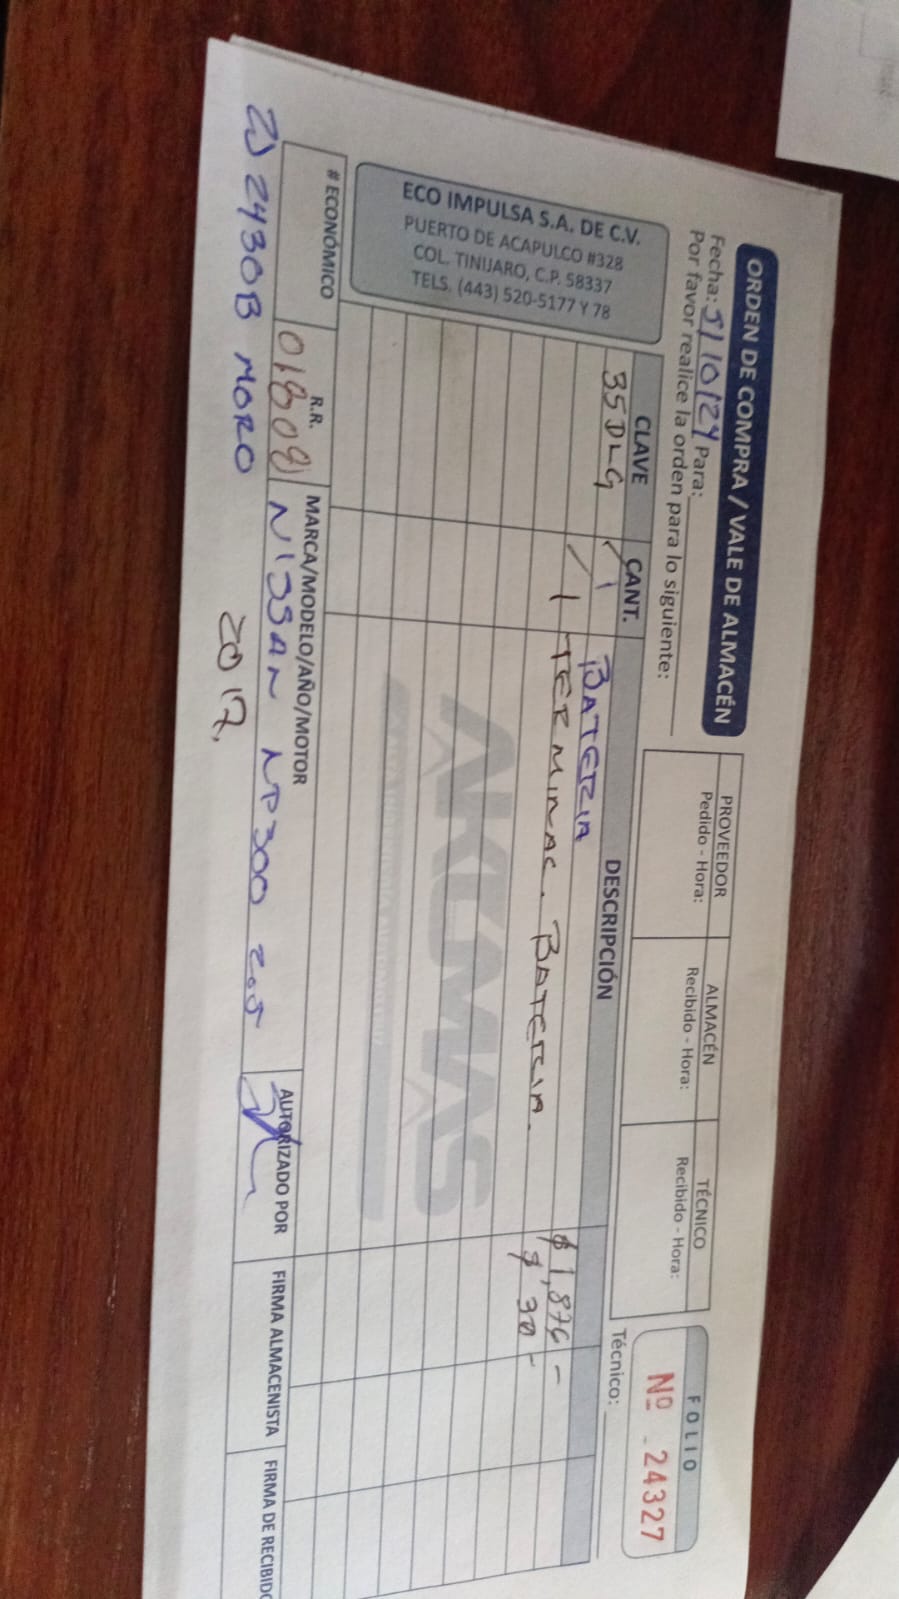 ORDEN DE COMPRA / VALE DE ALMACÉN
Fecha: 5/10/24 Para:
Por favor realice la orden para lo siguiente:
PROVEEDOR
Pedido - Hora:
ALMACÉN
Recibido - Hora:
TÉCNICO
Recibido - Hora:
FOLIO
Nº 24327
Técnico:
ECO IMPULSA S.A. DE C.V.
PUERTO DE ACAPULCO #328
COL. TINIJARO, C.P. 58337
TELS. (443) 520-5177 Y 78
CLAVE CANT. DESCRIPCIÓN
35DLG / 1 BATERIA $ 1,876 -
/ 1 TERMINAL. BATERIA. $ 30 -
AKUMAS
# ECONÓMICO R.R. MARCA/MODELO/AÑO/MOTOR AUTORIZADO POR FIRMA ALMACENISTA FIRMA DE RECIBIDO
NISSAN NP300 2.5
24308 MORO 2017.